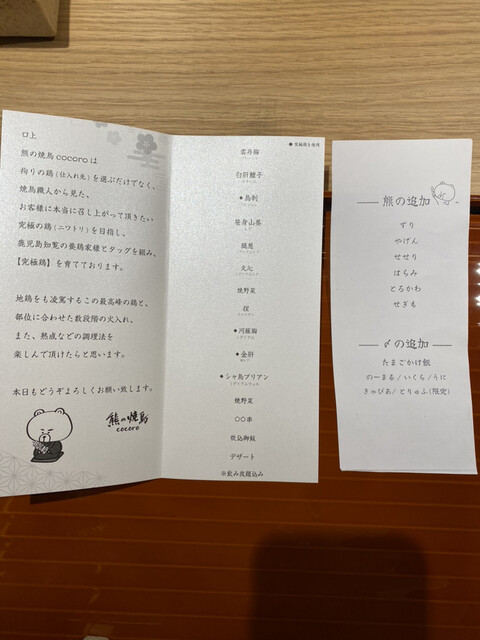 口上
熊の焼鳥cocoroは
拘りの鶏(仕入れ先)を選ぶだけでなく、
焼鳥職人から見た、
お客様に本当に召し上がって頂きたい
究極の鶏(ニワトリ)を目指し、
鹿児島知覧の養鶏家様とタッグを組み、
【究極鶏】を育てております。
地鶏をも凌駕するこの最高峰の鶏と、
部位に合わせた数段階の火入れ、
また、熟成などの調理法を
楽しんで頂けたらと思います。
本日もどうぞよろしくお願い致します。
熊の焼鳥
cocoro
◆究極鶏を使用
雲丹
白肝
◆鳥刺
笹身山葵
銀杏
丸
焼野菜
◆河豚腸
◆金肝
◆シャ鳥ブリアン
焼野菜
○○串
炊込御飯
デザート
※飲み放題込み
熊の追加
ずり
やげん
せせり
はらみ
とろかわ
せぎも
〆の追加
たまごかけ飯
のーまる/いくら/うに
きゃびあ/とりゅふ(限定)